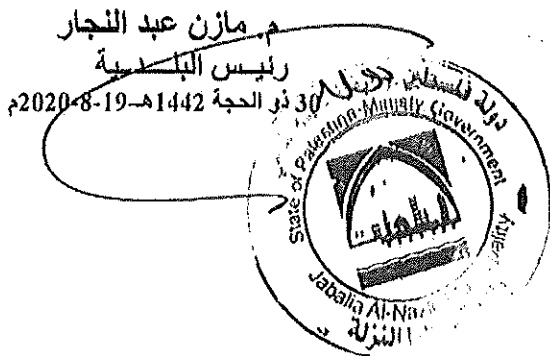 م. مازن عبد النجار
رئيس البلـــدية
30 ذو الحجة 1442هـ-19-8-2020م
دولة فلسطين
State of Palestine-Ministry Government
Jabalia Al-Na
النزلة